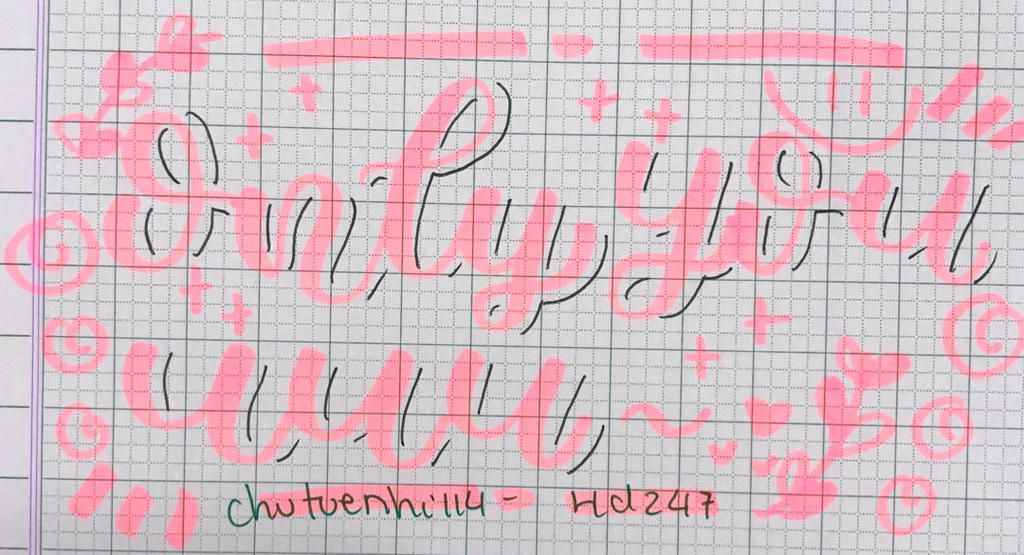 Only you
uuu ~
chutuenhi114 - Hd247